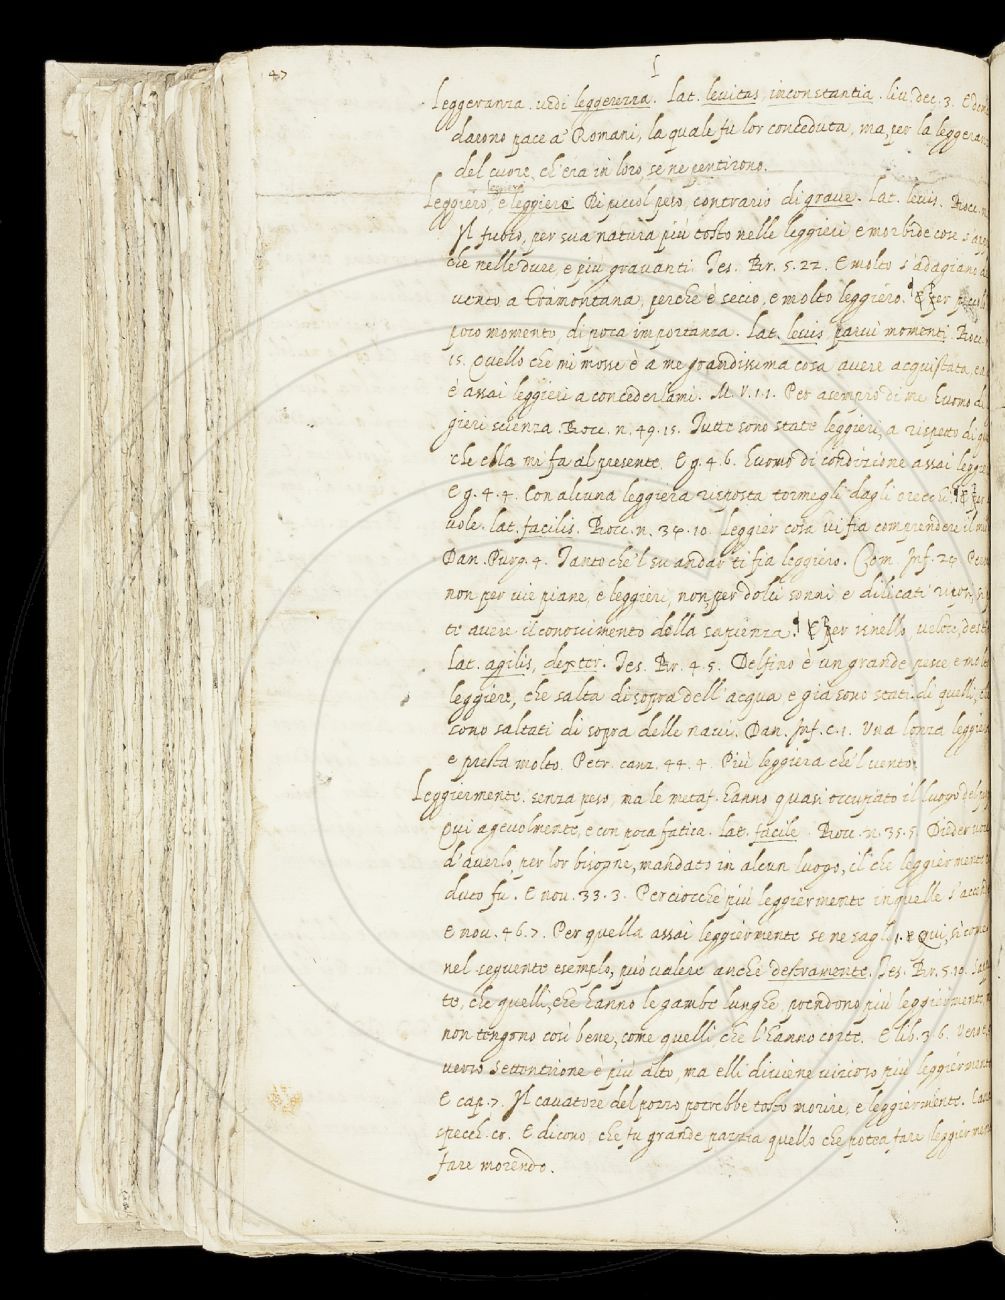 47
L
Leggeranza. vedi leggerezza. Lat. levitas, inconstantia. liv. dec. 3. E
daeono pace a' Romani, la quale fu lor conceduta, ma, per la
del cuore, ch'era in loro, se ne pentirono.
leggiero
Leggiero, e leggiere Di picciol peso, contrario di grave. Lat. levis. Bocc. n.
Il fubio, per sua natura più tosto nelle leggieri e morbide cose
che nelle dure, e più gravanti. Tes. Br. 5. 22. E molto s'adagiano
vento a tramontana, perche è secco, e molto leggiero. ¶ E per
poco momento, di poca importanza. Lat. levis, parvi momenti. Bocc.
15. Quello che mi mosse è a me grandissima cosa avere acquistata,
è assai leggieri a concederlami. M. V. 1. 1. Per asempro di me huomo di
gieri scienza. Bocc. n. 49. 15. Tutte sono state leggieri, a rispetto di
che ella mi fa al presente. E g. 4. 6. huomo di condizione assai
E g. 4. 4. Con alcuna leggiera risposta tormegli dagli orecchi. ¶ E per
vole. lat. facilis. Bocc. n. 34. 10. Leggier cosa vi fia comprendere il
Dan. Purg. 4. Tanto che'l su andar ti fia leggiero. Com. Inf. 24
non per vie piane, e leggieri, non per dolci sonni e dilicati
te avere il conoscimento della sapienza. ¶ E per isnello, veloce,
Lat. agilis, dexter. Tes. Br. 4. 5. Delfino è un grande pesce e
leggiere, che salta di sopra dell'acqua e gia sono stati di quelli,
sono saltati di sopra delle navi. Dan. Inf. c. 1. Una lonza
e presta molto. Petr. canz. 44. 4. Più leggiera che'l vento.
Leggiermente. senza peso, ma le metaf. hanno quasi occupato il luogo del
Qui agevolmente, e con poca fatica. Lat. facile. Bocc. n. 35. 5.
d'averlo, per lor bisogne, mandato in alcun luogo, il che leggiermente
duto fu. E nov. 33. 3. Perciocche più leggiermente in quelle
E nov. 46. 7. Per quella assai leggiermente se ne sagli. E Qui, si come
nel seguente esemplo, può valere anche destramente. Tes. Br. 5. 19.
te, che quelli, che hanno le gambe lunghe, prendono più leggiermente,
non tengono così bene, come quelli che l'hanno corte. E lib. 3. 6.
verso Settentrione è più alto, ma elli diviene vizioso più leggiermente
E cap. 7. Il cavatore del pozzo potrebbe tosto morire, e leggiermente.
specch. cr. E dicono, che fu grande pazzia quello che potea fare
fare morendo.